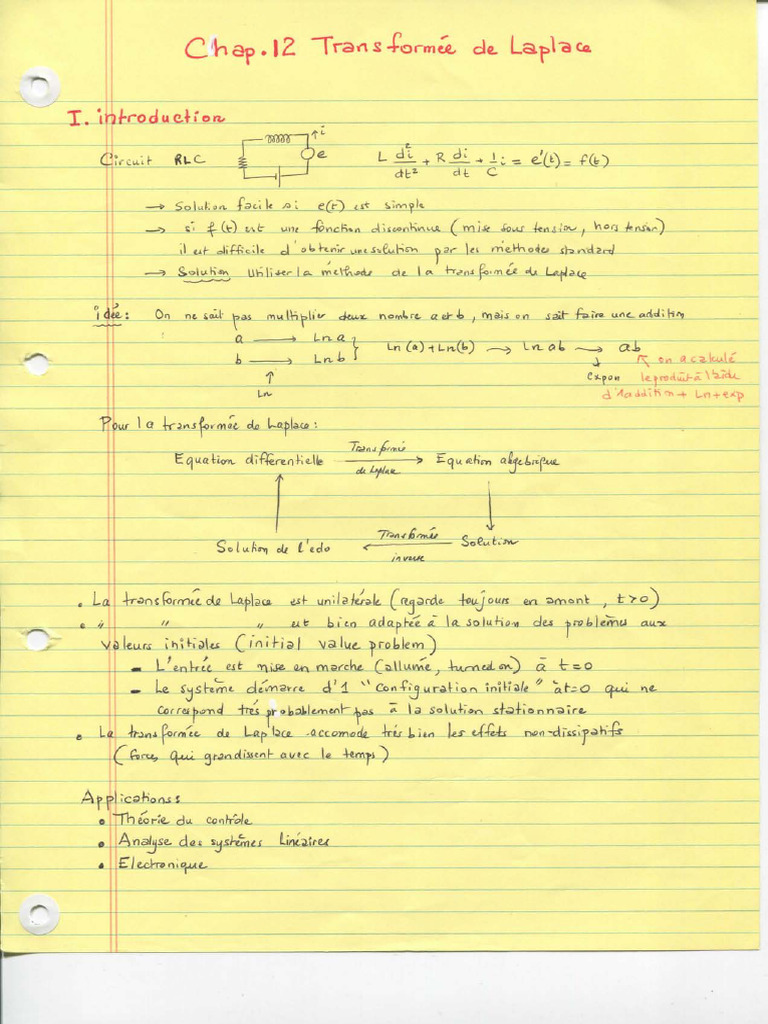 Chap.12 Transformée de Laplace
I. introduction
Circuit RLC i e L d²i/dt² + R di/dt + 1/C i = e'(t) = f(t)
→ Solution facile si e(t) est simple
→ si f(t) est une fonction discontinue (mise sous tension, hors tension)
il est difficile d'obtenir une solution par les méthodes standard
→ Solution Utiliser la méthode de la transformée de Laplace
idée: On ne sait pas multiplier deux nombre a et b, mais on sait faire une addition
a → Ln a
b → Ln b } Ln(a)+Ln(b) → Ln ab → ab
↑ Ln ↓ expon ↖ on a calculé
le produit à l'aide
d'1 addition + Ln + exp
Pour la transformée de Laplace:
Equation differentielle Transformée de Laplace → Equation algebrique
Solution de l'edo ← Transformée inverse Solution
• La transformée de Laplace est unilatérale (regarde toujours en amont, t>0)
• " " " est bien adaptée à la solution des problèmes aux
valeurs initiales (initial value problem)
- L'entrée est mise en marche (allumé, turned on) à t=0
- Le système démarre d'1 "configuration initiale" à t=0 qui ne
correspond très probablement pas à la solution stationnaire
• La transformée de Laplace accomode très bien les effets non-dissipatifs
(forces qui grandissent avec le temps)
Applications:
• Théorie du contrôle
• Analyse des systèmes linéaires
• Electronique